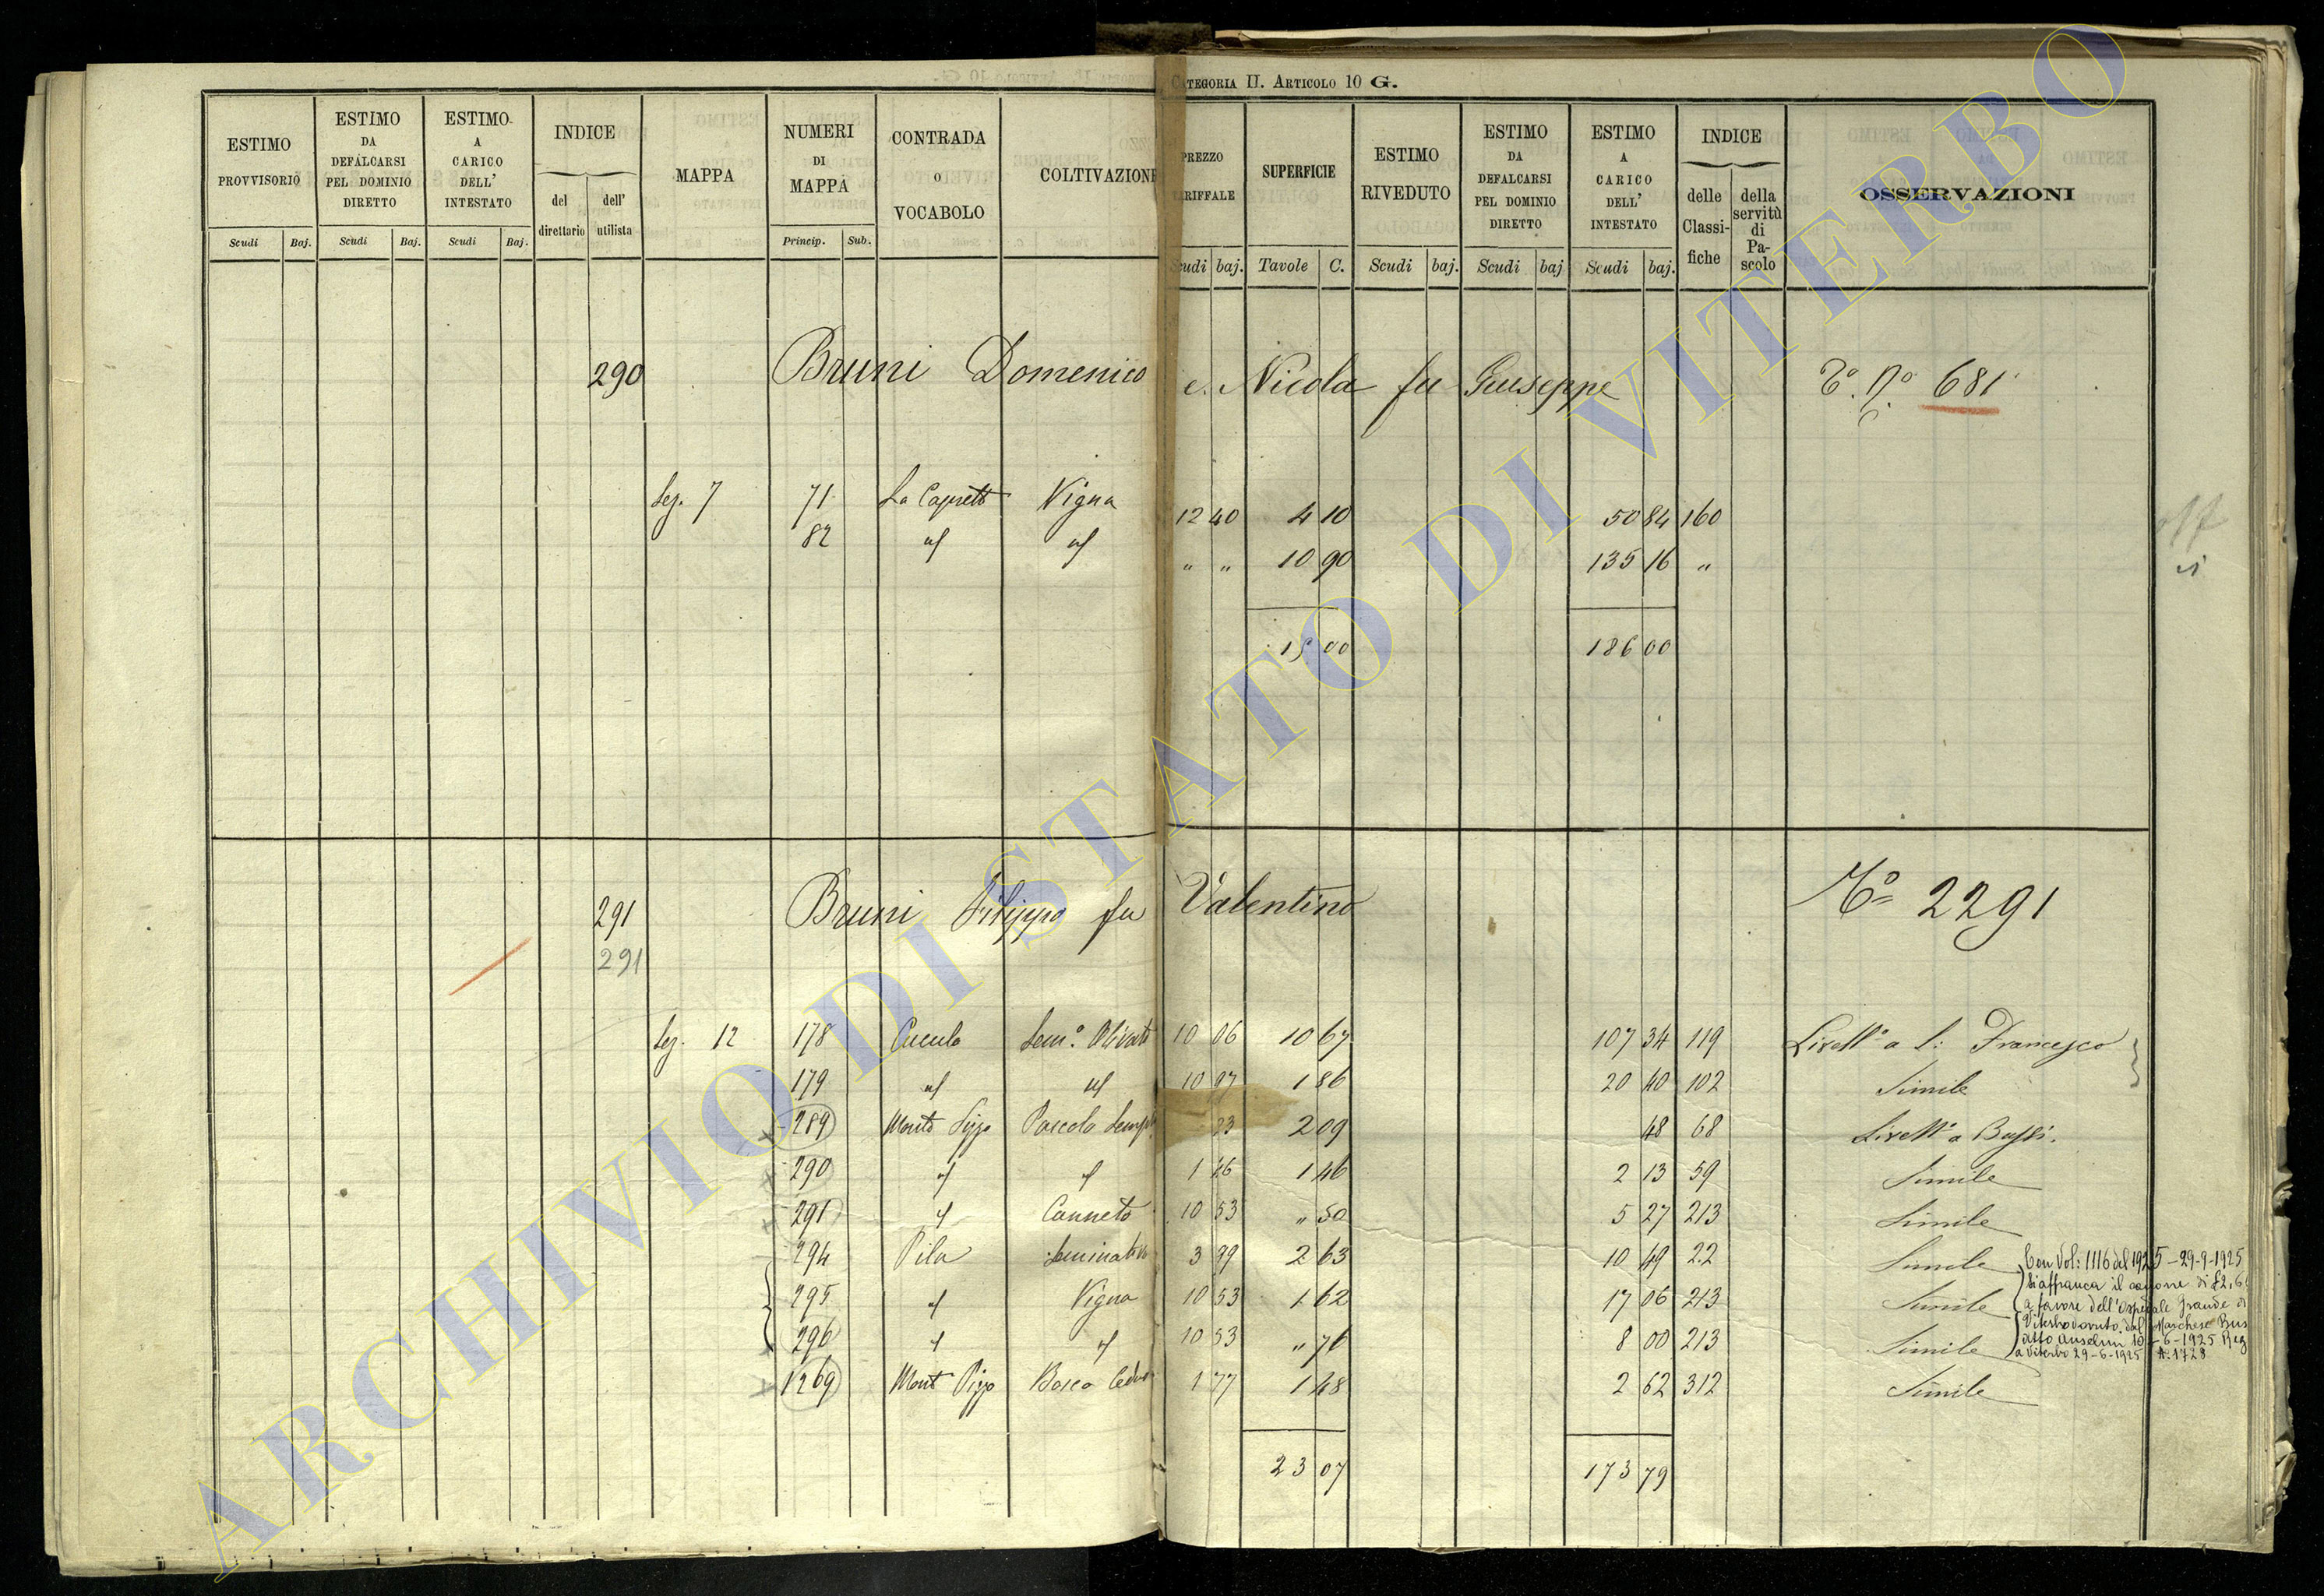 CATEGORIA II. ARTICOLO 10 G.
ESTIMO PROVVISORIO Scudi Baj.
ESTIMO DA DEFALCARSI PEL DOMINIO DIRETTO Scudi Baj.
ESTIMO A CARICO DELL' INTESTATO Scudi Baj.
INDICE del direttario dell' utilista
MAPPA
NUMERI DI MAPPA Princip. Sub.
CONTRADA O VOCABOLO
COLTIVAZIONE
PREZZO TARIFFALE Scudi baj.
SUPERFICIE Tavole C.
ESTIMO RIVEDUTO Scudi baj.
ESTIMO DA DEFALCARSI PEL DOMINIO DIRETTO Scudi baj
ESTIMO A CARICO DELL' INTESTATO Scudi baj.
INDICE delle Classifiche della servitù di Pascolo
OSSERVAZIONI
290 Bruni Domenico e Nicola fu Giuseppe 681
Sez. 7 71 La Vigna 12 40 4 10 50 84 160
82 " " 10 90 135 16 "
15 00 186 00
291 Bruni Filippo fu Valentino Nº 2291
291
Sez. 12 178 Cucula Sem.º Olivato 10 06 10 67 107 34 119 Livellº a S. Francesco
179 10 97 1 86 20 40 102 Simile
289 Pascolo 23 2 09 48 68 Livellº a Bussi.
290 1 46 1 46 2 13 59 Simile
291 Canneto 10 53 " 50 5 27 213 Simile
294 Pila Seminativo 3 99 2 63 10 49 22 Simile
295 Vigna 10 53 1 62 17 06 213 Simile
296 10 53 " 76 8 00 213 Simile
1269 Mont Pizzo Bosco Ceduo 1 77 1 48 2 62 312 Simile
Con Vol: 1116 del 1925 - 29-9-1925
Si affranca il canone di £2,6
a favore dell'Ospedale Grande di
Viterbo dovuto dal Marchese Bus
atto Anselmi 10-6-1925 Reg
a Viterbo 29-6-1925 N. 1728
23 07 173 79
ARCHIVIO DI STATO DI VITERBO